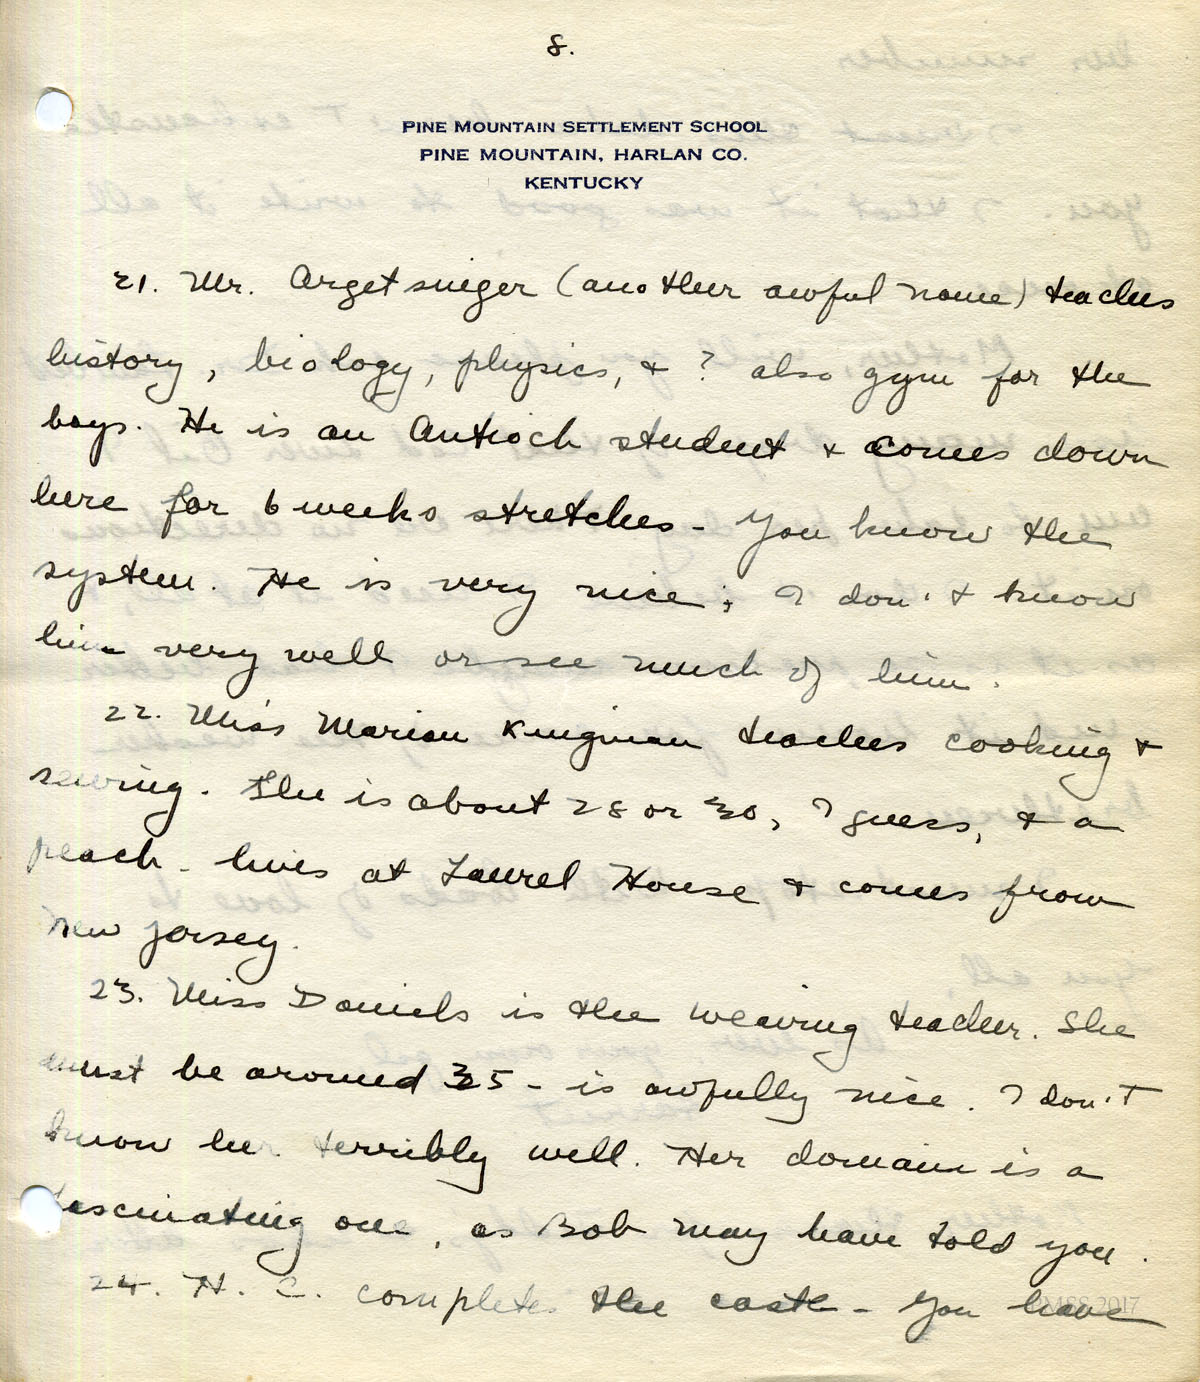 8.
PINE MOUNTAIN SETTLEMENT SCHOOL
PINE MOUNTAIN, HARLAN CO.
KENTUCKY
21. Mr. Argetsinger (another awful name) teaches
history, biology, physics, & ? also gym for the
boys. He is an Antioch student & comes down
here for 6 weeks stretches - You know the
system. He is very nice; I don't know
him very well or see much of him.
22. Miss Marian Kingman teaches cooking &
sewing. She is about 28 or 30, I guess, & a
peach - lives at Laurel House & comes from
New Jersey.
23. Miss Daniels is the weaving teacher. She
must be around 35 - is awfully nice. I don't
know her terribly well. Her domain is a
fascinating one, as Bob may have told you.
24. H. C. completes the cast - You have
PMSS 2017